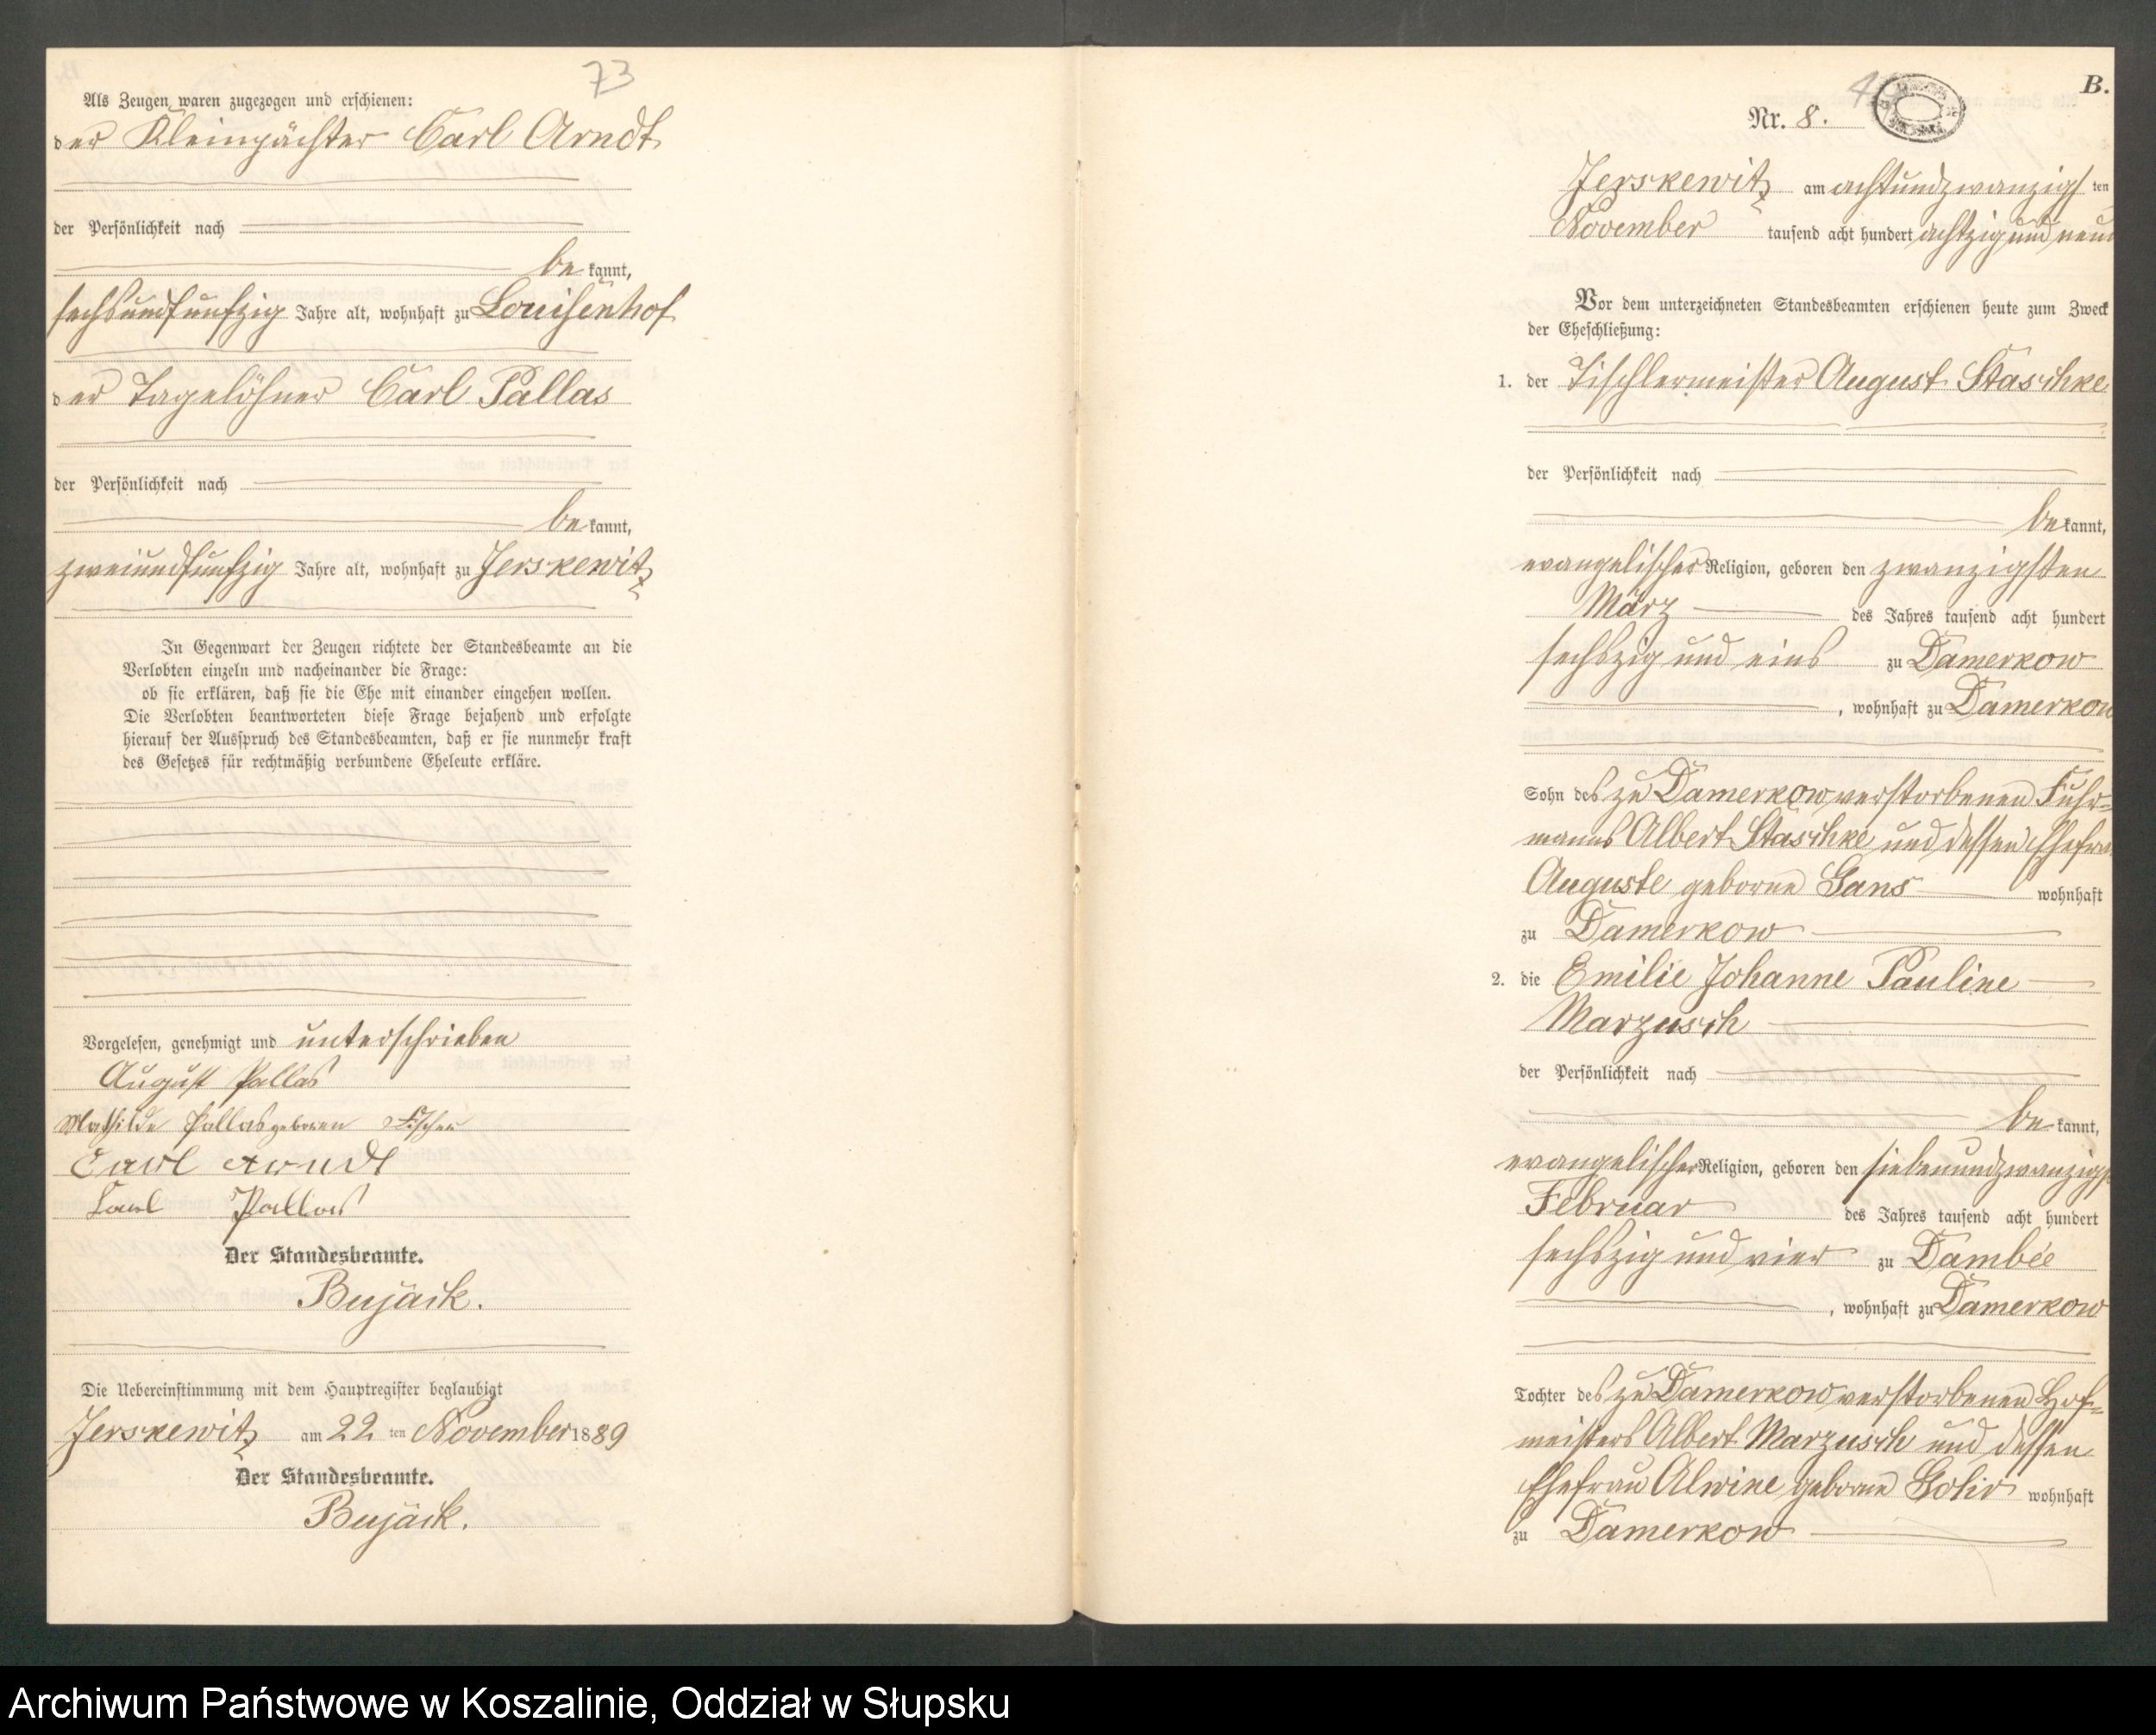 73
Als Zeugen waren zugezogen und erschienen:
der Kleinpächter Carl Arndt
der Persönlichkeit nach
be kannt,
sechsundfunfzig Jahre alt, wohnhaft zu Louisenhof
der Tagelöhner Carl Pallas
der Persönlichkeit nach
be kannt,
zweiundfunfzig Jahre alt, wohnhaft zu Jerskewitz
In Gegenwart der Zeugen richtete der Standesbeamte an die
Verlobten einzeln und nacheinander die Frage:
ob sie erklären, daß sie die Ehe mit einander eingehen wollen.
Die Verlobten beantworteten diese Frage bejahend und erfolgte
hierauf der Ausspruch des Standesbeamten, daß er sie nunmehr kraft
des Gesetzes für rechtmäßig verbundene Eheleute erkläre.
Vorgelesen, genehmigt und unterschrieben
August Pallas
Mathilde Pallas geboren Fischer
Carl Arndt
Carl Pallas
Der Standesbeamte.
Bujack.
Die Uebereinstimmung mit dem Hauptregister beglaubigt
Jerskewitz am 22 ten November 1889
Der Standesbeamte.
Bujack.
B.
Nr. 8.
Jerskewitz am achtundzwanzigs ten
November tausend acht hundert achtzig und neun
Vor dem unterzeichneten Standesbeamten erschienen heute zum Zweck
der Eheschließung:
1. der Tischlermeister August Staschke
der Persönlichkeit nach
be kannt,
evangelischer Religion, geboren den zwanzigsten
März des Jahres tausend acht hundert
sechszig und eins zu Damerkow
, wohnhaft zu Damerkow
Sohn des zu Damerkow verstorbenen Fuhr=
manns Albert Staschke und dessen Ehefrau
Auguste geborne Gans wohnhaft
zu Damerkow
2. die Emilie Johanne Pauline
Marzusch
der Persönlichkeit nach
be kannt,
evangelischer Religion, geboren den siebenundzwanzigst
Februar des Jahres tausend acht hundert
sechszig und vier zu Dambee
, wohnhaft zu Damerkow
Tochter des zu Damerkow verstorbenen Hof=
meisters Albert Marzusch und dessen
Ehefrau Alwine geborne wohnhaft
zu Damerkow
Archiwum Państwowe w Koszalinie, Oddział w Słupsku